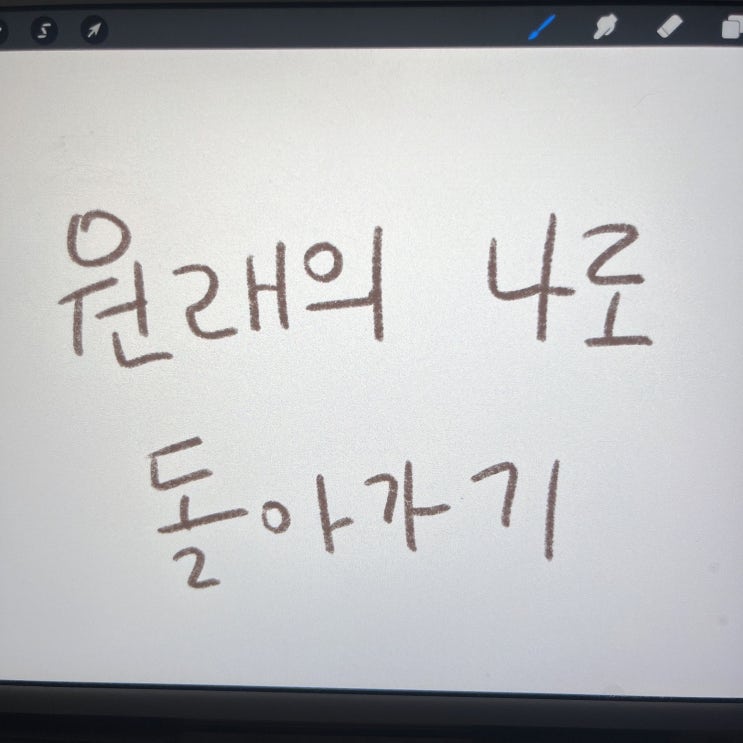 원래의 나로
돌아가기